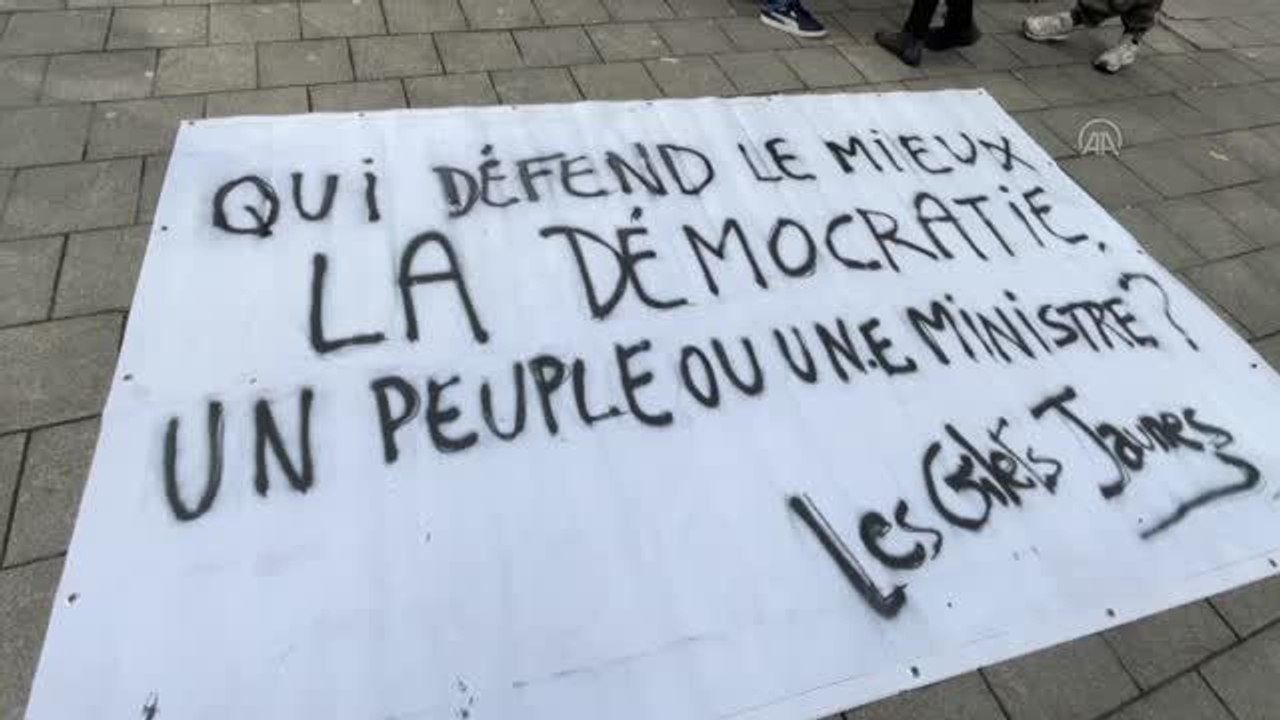 QUi DÉFEND LE MiEUX
LA DÉMOCRATiE.
UN PEUPLE OU UN.E MiNiSTRE?
Les Gilets Jaunes
AA